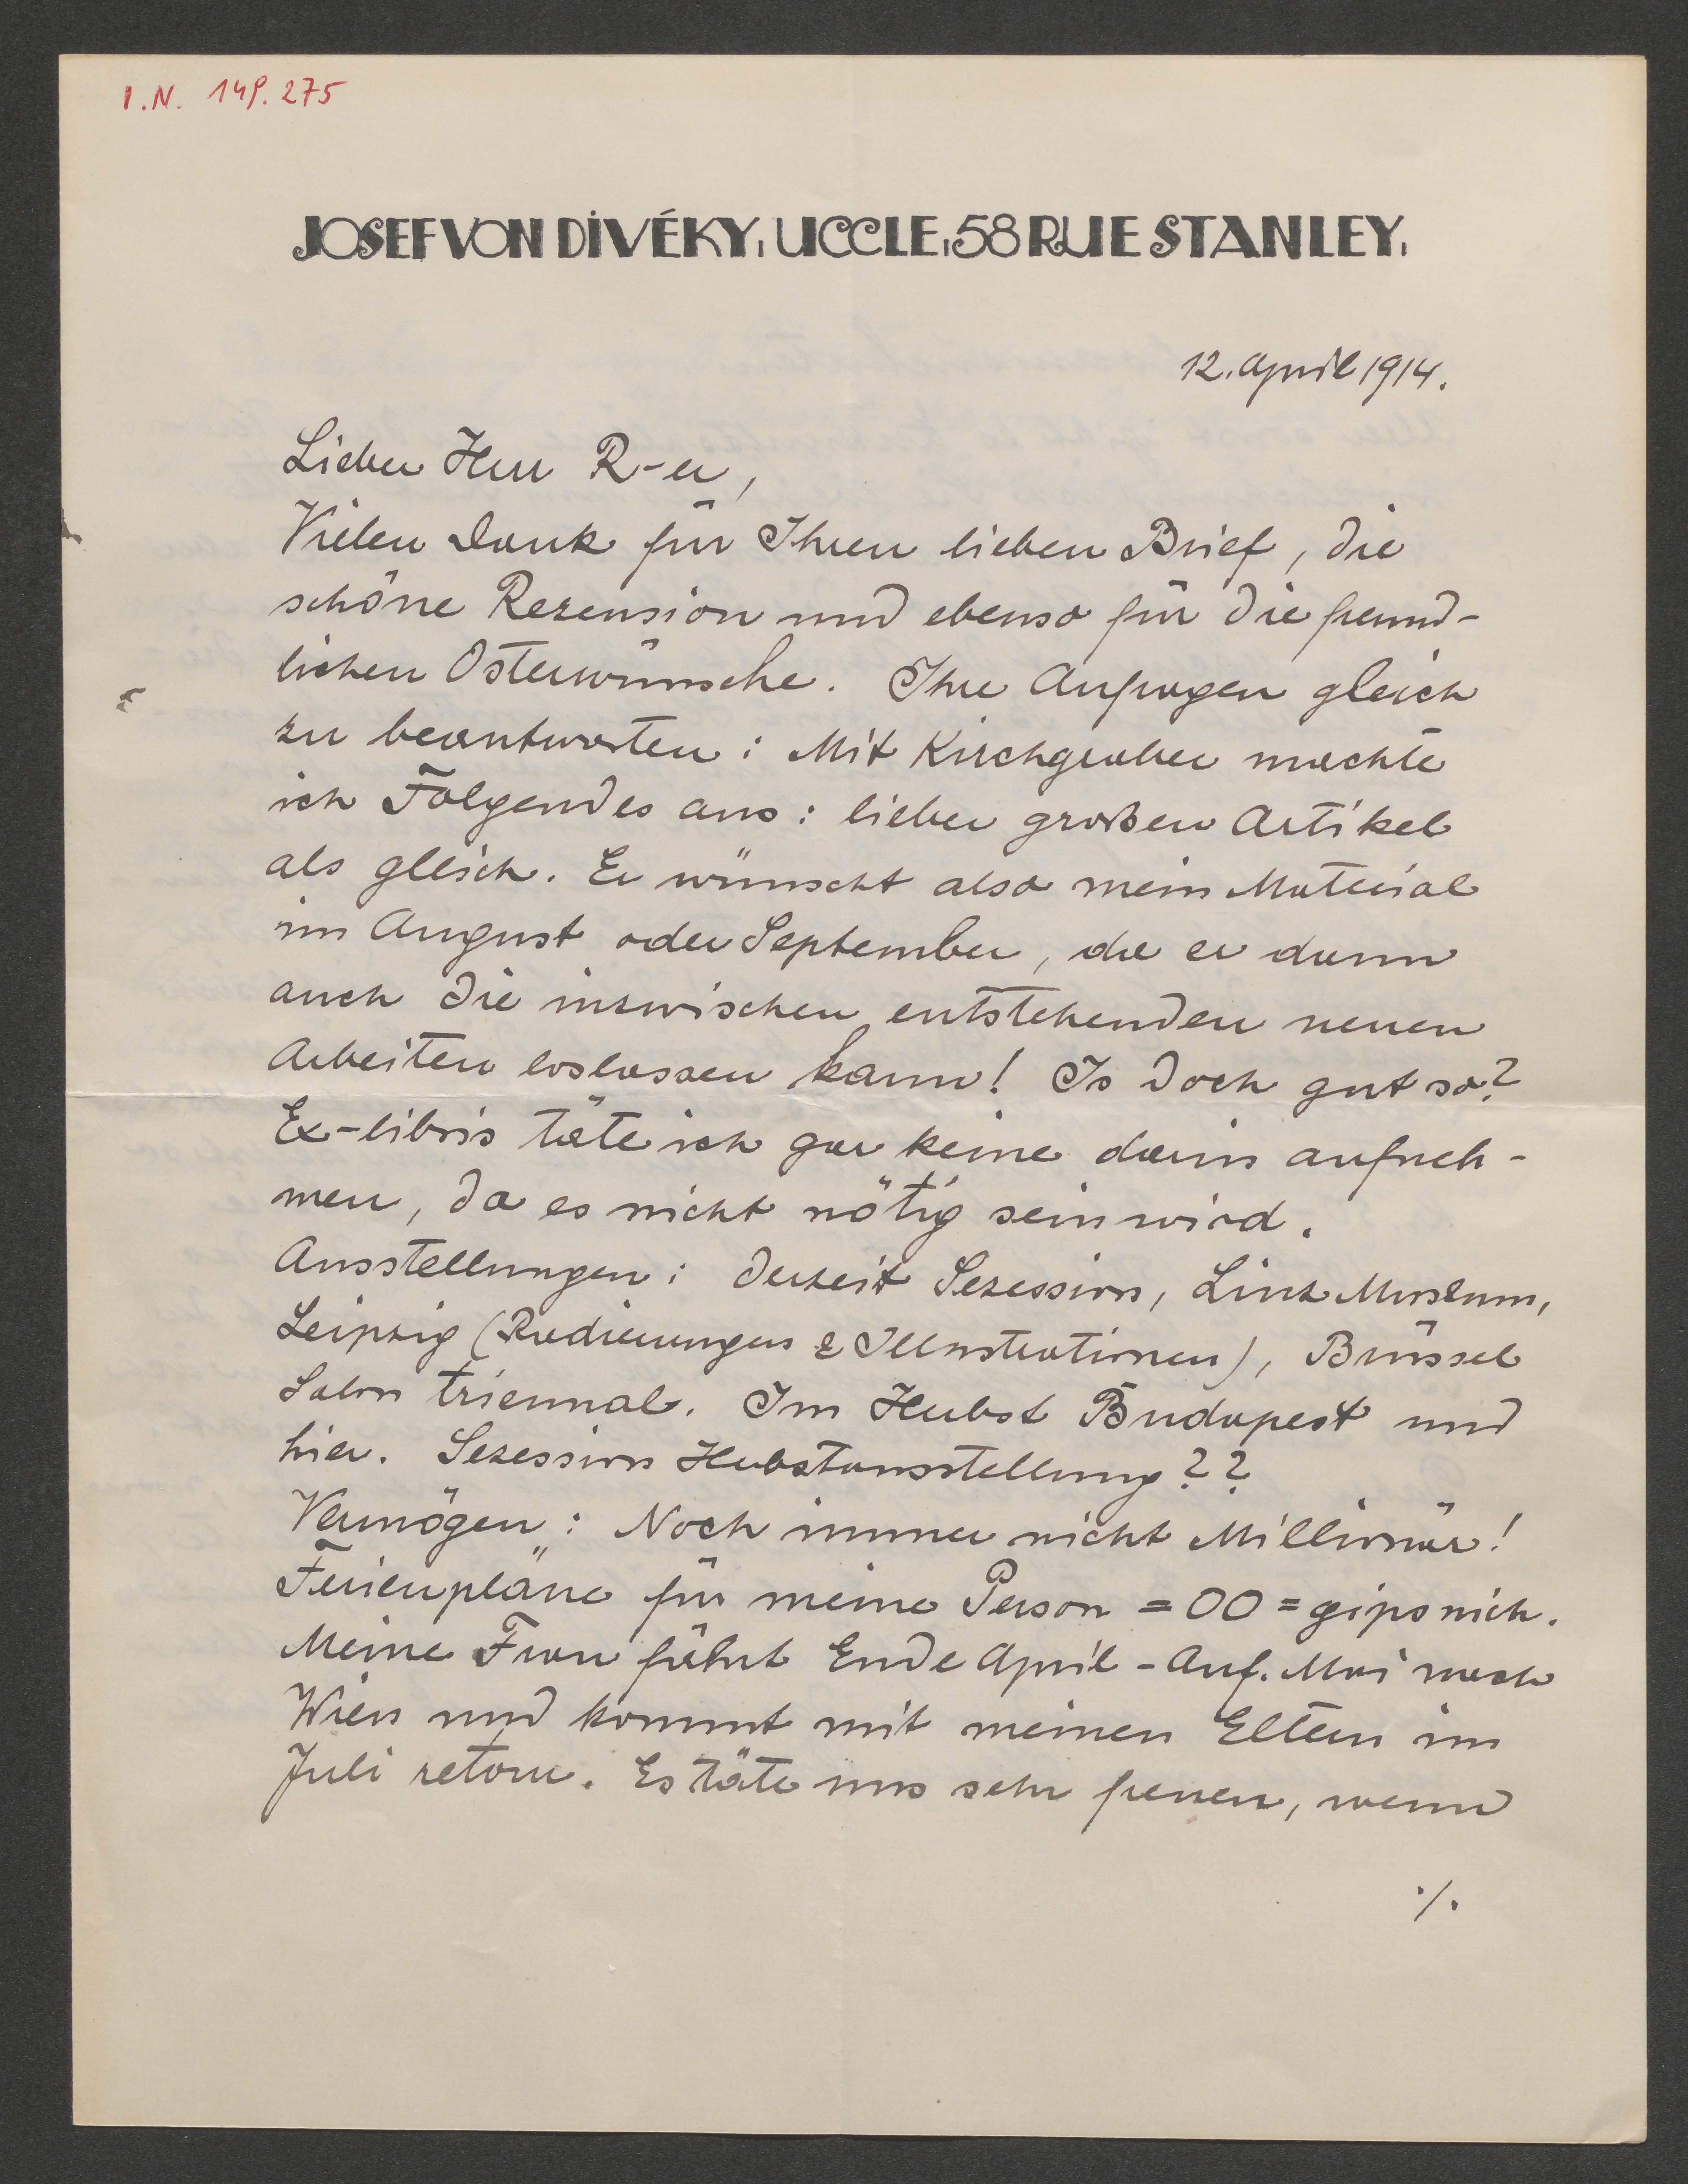 I.N. 149.275
JOSEF VON DIVÉKY, UCCLE, 58 RUE STANLEY,
12. April 1914.
Lieber Herr R-er,
Vielen Dank für Ihren lieben Brief, die
schöne Rezension und ebenso für die freund-
lichen Osterwünsche. Ihre Anfragen gleich
zu beantworten: Mit Kirchgraber machte
ich Folgendes aus: lieber großen Artikel
als gleich. Er wünscht also mein Material
im August oder September, da er dann
auch die inzwischen entstehenden neuen
Arbeiten loslassen kann! Is doch gut so?
Ex-libris täte ich gar keine darin aufneh-
men, da es nicht nötig sein wird.
Ausstellungen: derzeit Sezession, Linz Museum,
Leipzig (Radierungen & Illustrationen), Brüssel
Salon triennal. Im Herbst Budapest und
hier. Sezession Herbstausstellung??
Vermögen: Noch immer nicht Millionär!
Ferienpläne für meine Person = 00 = gips nich.
Meine Frau fährt Ende April - Anf. Mai nach
Wien und kommt mit meinen Eltern im
Juli retour. Es täte uns sehr freuen, wenn
./.